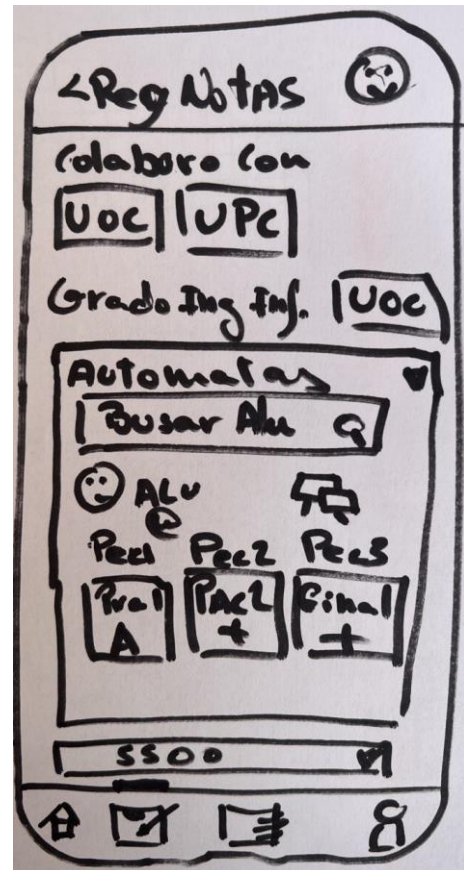 <Reg Notas
Colaboro Con
UOC UPC
Grado Ing Inf. UOC
Automatas
Busar Alu
ALU
Pec1 Pec2 Pec3
Pra1 PAc2 Final
A + +
SSOO